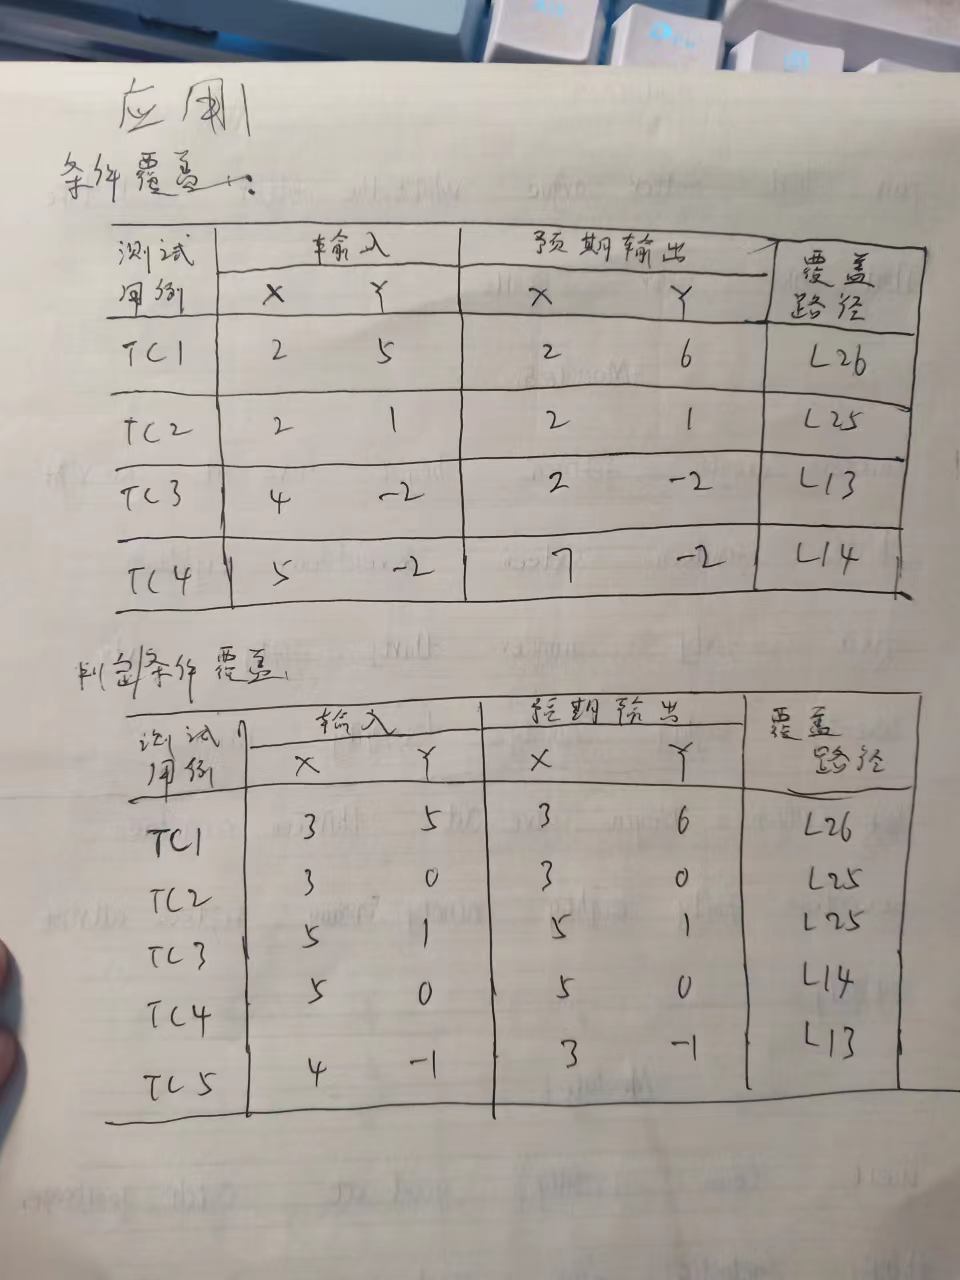 应用
条件覆盖:
测试用例 输入 预期输出 覆盖路径
X Y X Y
TC1 2 5 2 6 L26
TC2 2 1 2 1 L25
TC3 4 -2 2 -2 L13
TC4 5 -2 7 -2 L14
判定/条件覆盖:
测试用例 输入 预期输出 覆盖路径
X Y X Y
TC1 3 5 3 6 L26
TC2 3 0 3 0 L25
TC3 5 1 5 1 L25
TC4 5 0 5 0 L14
TC5 4 -1 3 -1 L13